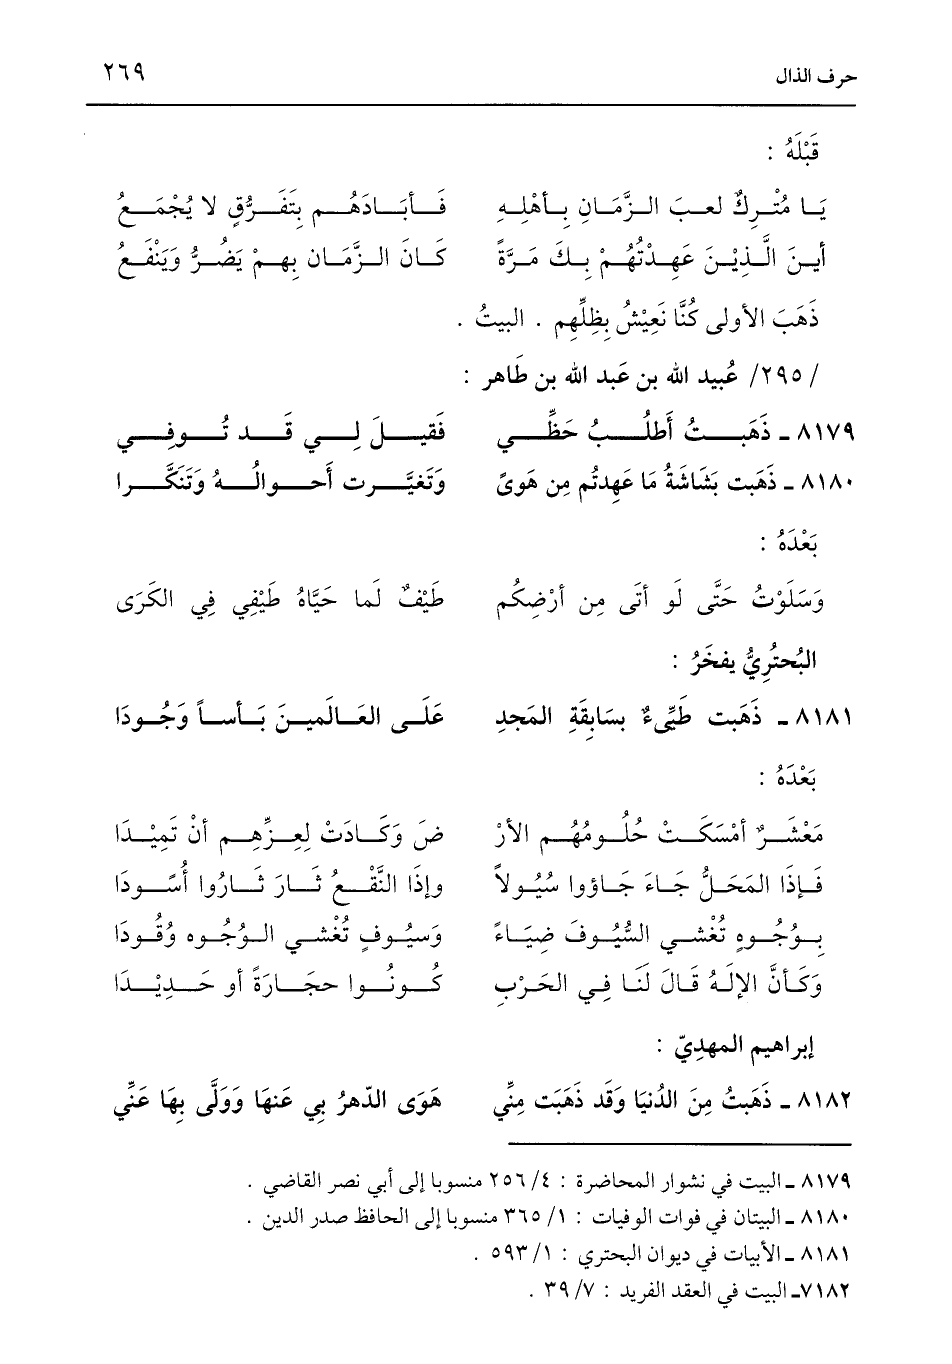 حرف الذال ٢٦٩
قَبْلَهُ :
يَا مُتْرِكٌ لعبَ الزَّمَانِ بِأهْلِهِ فَأبَادَهُم بِتَفَرُّقٍ لا يُجْمَعُ
أينَ الَّذِيْنَ عَهِدْتُهُمْ بِكَ مَرَّةً كَانَ الزَّمَان بِهِمْ يَضُرُّ وَيَنْفَعُ
ذَهَبَ الأولى كُنَّا نَعِيْشُ بِظِلِّهِم . البيتُ .
/٢٩٥/ عُبيد الله بن عَبد الله بن طَاهر :
٨١٧٩ ـ ذَهَبتُ أَطلُبُ حَظِّي فَقيلَ لِي قَد تُوفِي
٨١٨٠ ـ ذَهَبت بَشَاشَةُ مَا عَهِدتُم مِن هَوىً وَتَغيَّرت أحوالُهُ وَتَنَكَّرا
بَعْدَهُ :
وَسَلَوْتُ حَتَّى لَو أتَى مِن أرْضِكُم طَيْفٌ لَما حَيَّاهُ طَيْفِي فِي الكَرَى
البُحتُرِيُّ يفخَرُ :
٨١٨١ ـ ذَهَبت طَيِّىءٌ بسَابِقَةِ المَجدِ عَلَى العَالَمينَ بَأساً وَجُودَا
بَعْدَهُ :
مَعْشَرٌ أمْسَكَتْ حُلُومُهُم الأرْ ضَ وَكَادَتْ لِعِزِّهِم أنْ تَمِيْدَا
فَإذَا المَحَلُّ جَاءَ جَاؤوا سُيُولاً وإذَا النَّقْعُ ثَارَ ثَارُوا أُسُودَا
بِوُجُوهٍ تُغْشي السُّيُوفَ ضِيَاءً وَسيُوفٍ تُغْشي الوُجُوه وُقُودَا
وَكَأنَّ الإلَهُ قَالَ لَنَا فِي الحَرْبِ كُونُوا حجَارَةً أو حَدِيْدَا
إبراهيم المهدِيّ :
٨١٨٢ ـ ذَهَبتُ مِنَ الدُنيَا وَقَد ذَهَبَت مِنِّي هَوَى الدّهرُ بِي عَنهَا وَوَلَّى بِهَا عَنِّي
٨١٧٩ ـ البيت في نشوار المحاضرة : ٤/ ٢٥٦ منسوبا إلى أبي نصر القاضي .
٨١٨٠ ـ البيتان في فوات الوفيات : ١/ ٣٦٥ منسوبا إلى الحافظ صدر الدين .
٨١٨١ ـ الأبيات في ديوان البحتري : ١/ ٥٩٣ .
٧١٨٢ـ البيت في العقد الفريد : ٧/ ٣٩ .